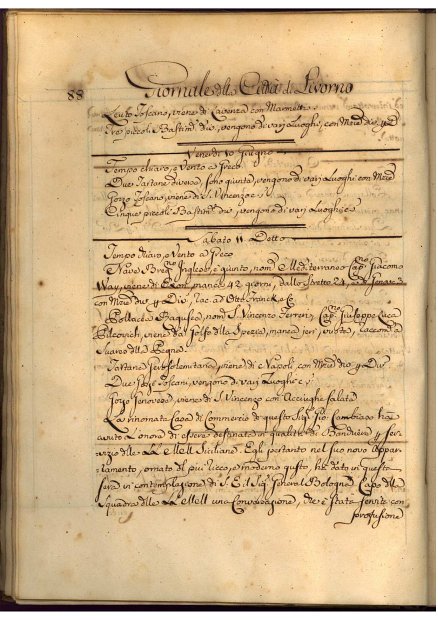 88 Giornale della Città di Livorno
Leuto Toscano, viene di Lavenza con Marmette
Tre piccoli Bastim.ti div.i, vengono di varj Luoghi, con Merd div.e
Venerdi 10 Giugno
Tempo chiaro, e Vento a Greco
Due Tartane diverse, sono giunte, vengono di varj Luoghi con Merd
Gozzo Toscano, viene di S. Vincenzo
Cinque piccoli Bastim.ti div.i, vengono di varj Luoghi
Sabato 11 Detto
Tempo chiaro, e Vento a Greco
Nave Inglese, è giunto, nom.o Mediterraneo Cap.no Giacomo
Way, viene di manca 42 giorni, dallo Stretto 24,
con Merd div.e p Div.i, rac. a Otto Franck e C.
Pollacca Raguseo, nom.a S. Vincenzo Ferreri, Cap.no Giuseppe Luca
viene dal Golfo della Spezia, manca jeri, vuota,
Suares
Tartana viene di Napoli, con Merd div.e p Div.i
Due Toscani, vengono di varj Luoghi
Gozzo Genovese, viene di S. Vincenzo con Acciughe salate
La rinomata Casa di Commercio di questo Sig. Gio. Cambiaso ha
avuto l'onore di essere destinata in qualità di Banchiera p ser-
vizio delle LL. MM. Siciliane. Egli pertanto nel suo nuovo Appar-
tamento, ornato del più ricco, e moderno gusto, ha dato in questa
sera in contemplazione di S. E. il Sig. General Bologna Capo della
Squadra delle LL. MM. una Conversazione, che è stata servita con
profusione